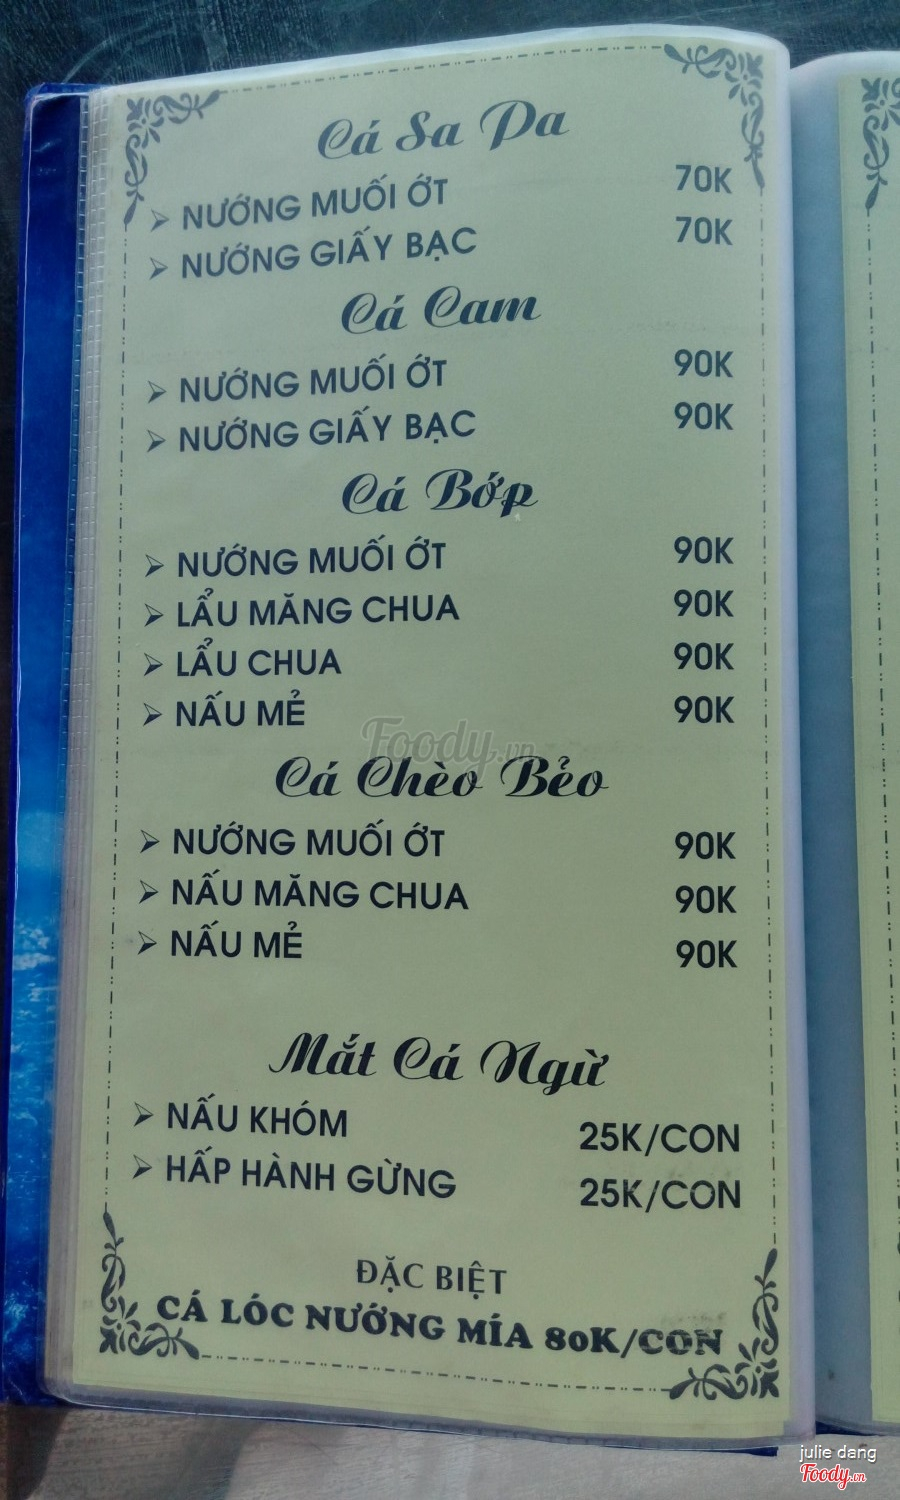 Cá Sa Pa
NƯỚNG MUỐI ỚT 70K
NƯỚNG GIẤY BẠC 70K
Cá Cam
NƯỚNG MUỐI ỚT 90K
NƯỚNG GIẤY BẠC 90K
Cá Bớp
NƯỚNG MUỐI ỚT 90K
LẨU MĂNG CHUA 90K
LẨU CHUA 90K
NẤU MẺ 90K
Foody.vn
Cá Chèo Bẻo
NƯỚNG MUỐI ỚT 90K
NẤU MĂNG CHUA 90K
NẤU MẺ 90K
Mắt Cá Ngừ
NẤU KHÓM 25K/CON
HẤP HÀNH GỪNG 25K/CON
ĐẶC BIỆT
CÁ LÓC NƯỚNG MÍA 80K/CON
julie dang
Foody.vn